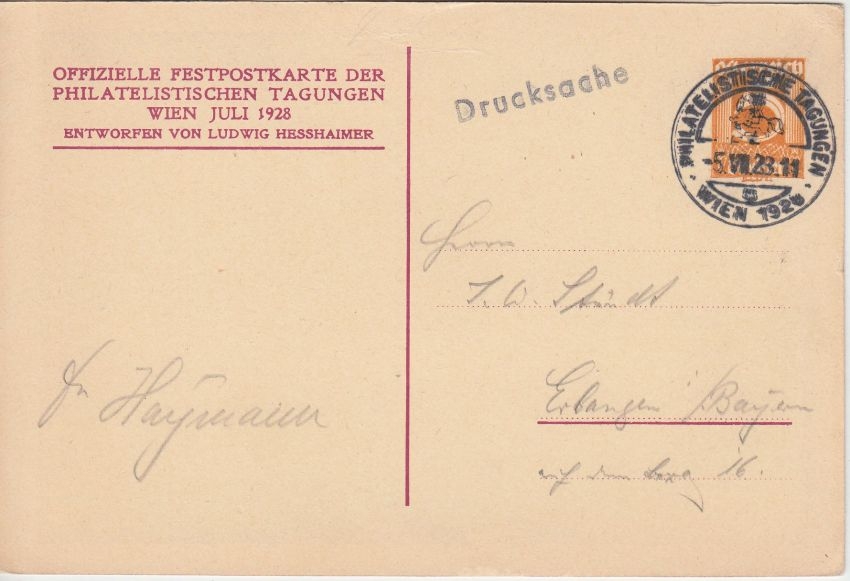 OFFIZIELLE FESTPOSTKARTE DER
PHILATELISTISCHEN TAGUNGEN
WIEN JULI 1928
ENTWORFEN VON LUDWIG HESSHAIMER
Drucksache
PHILATELISTISCHE TAGUNGEN
-5.VII.28.11
WIEN 1928
Herrn
Erlangen /Bayern
auf dem berg 16.
Haymann